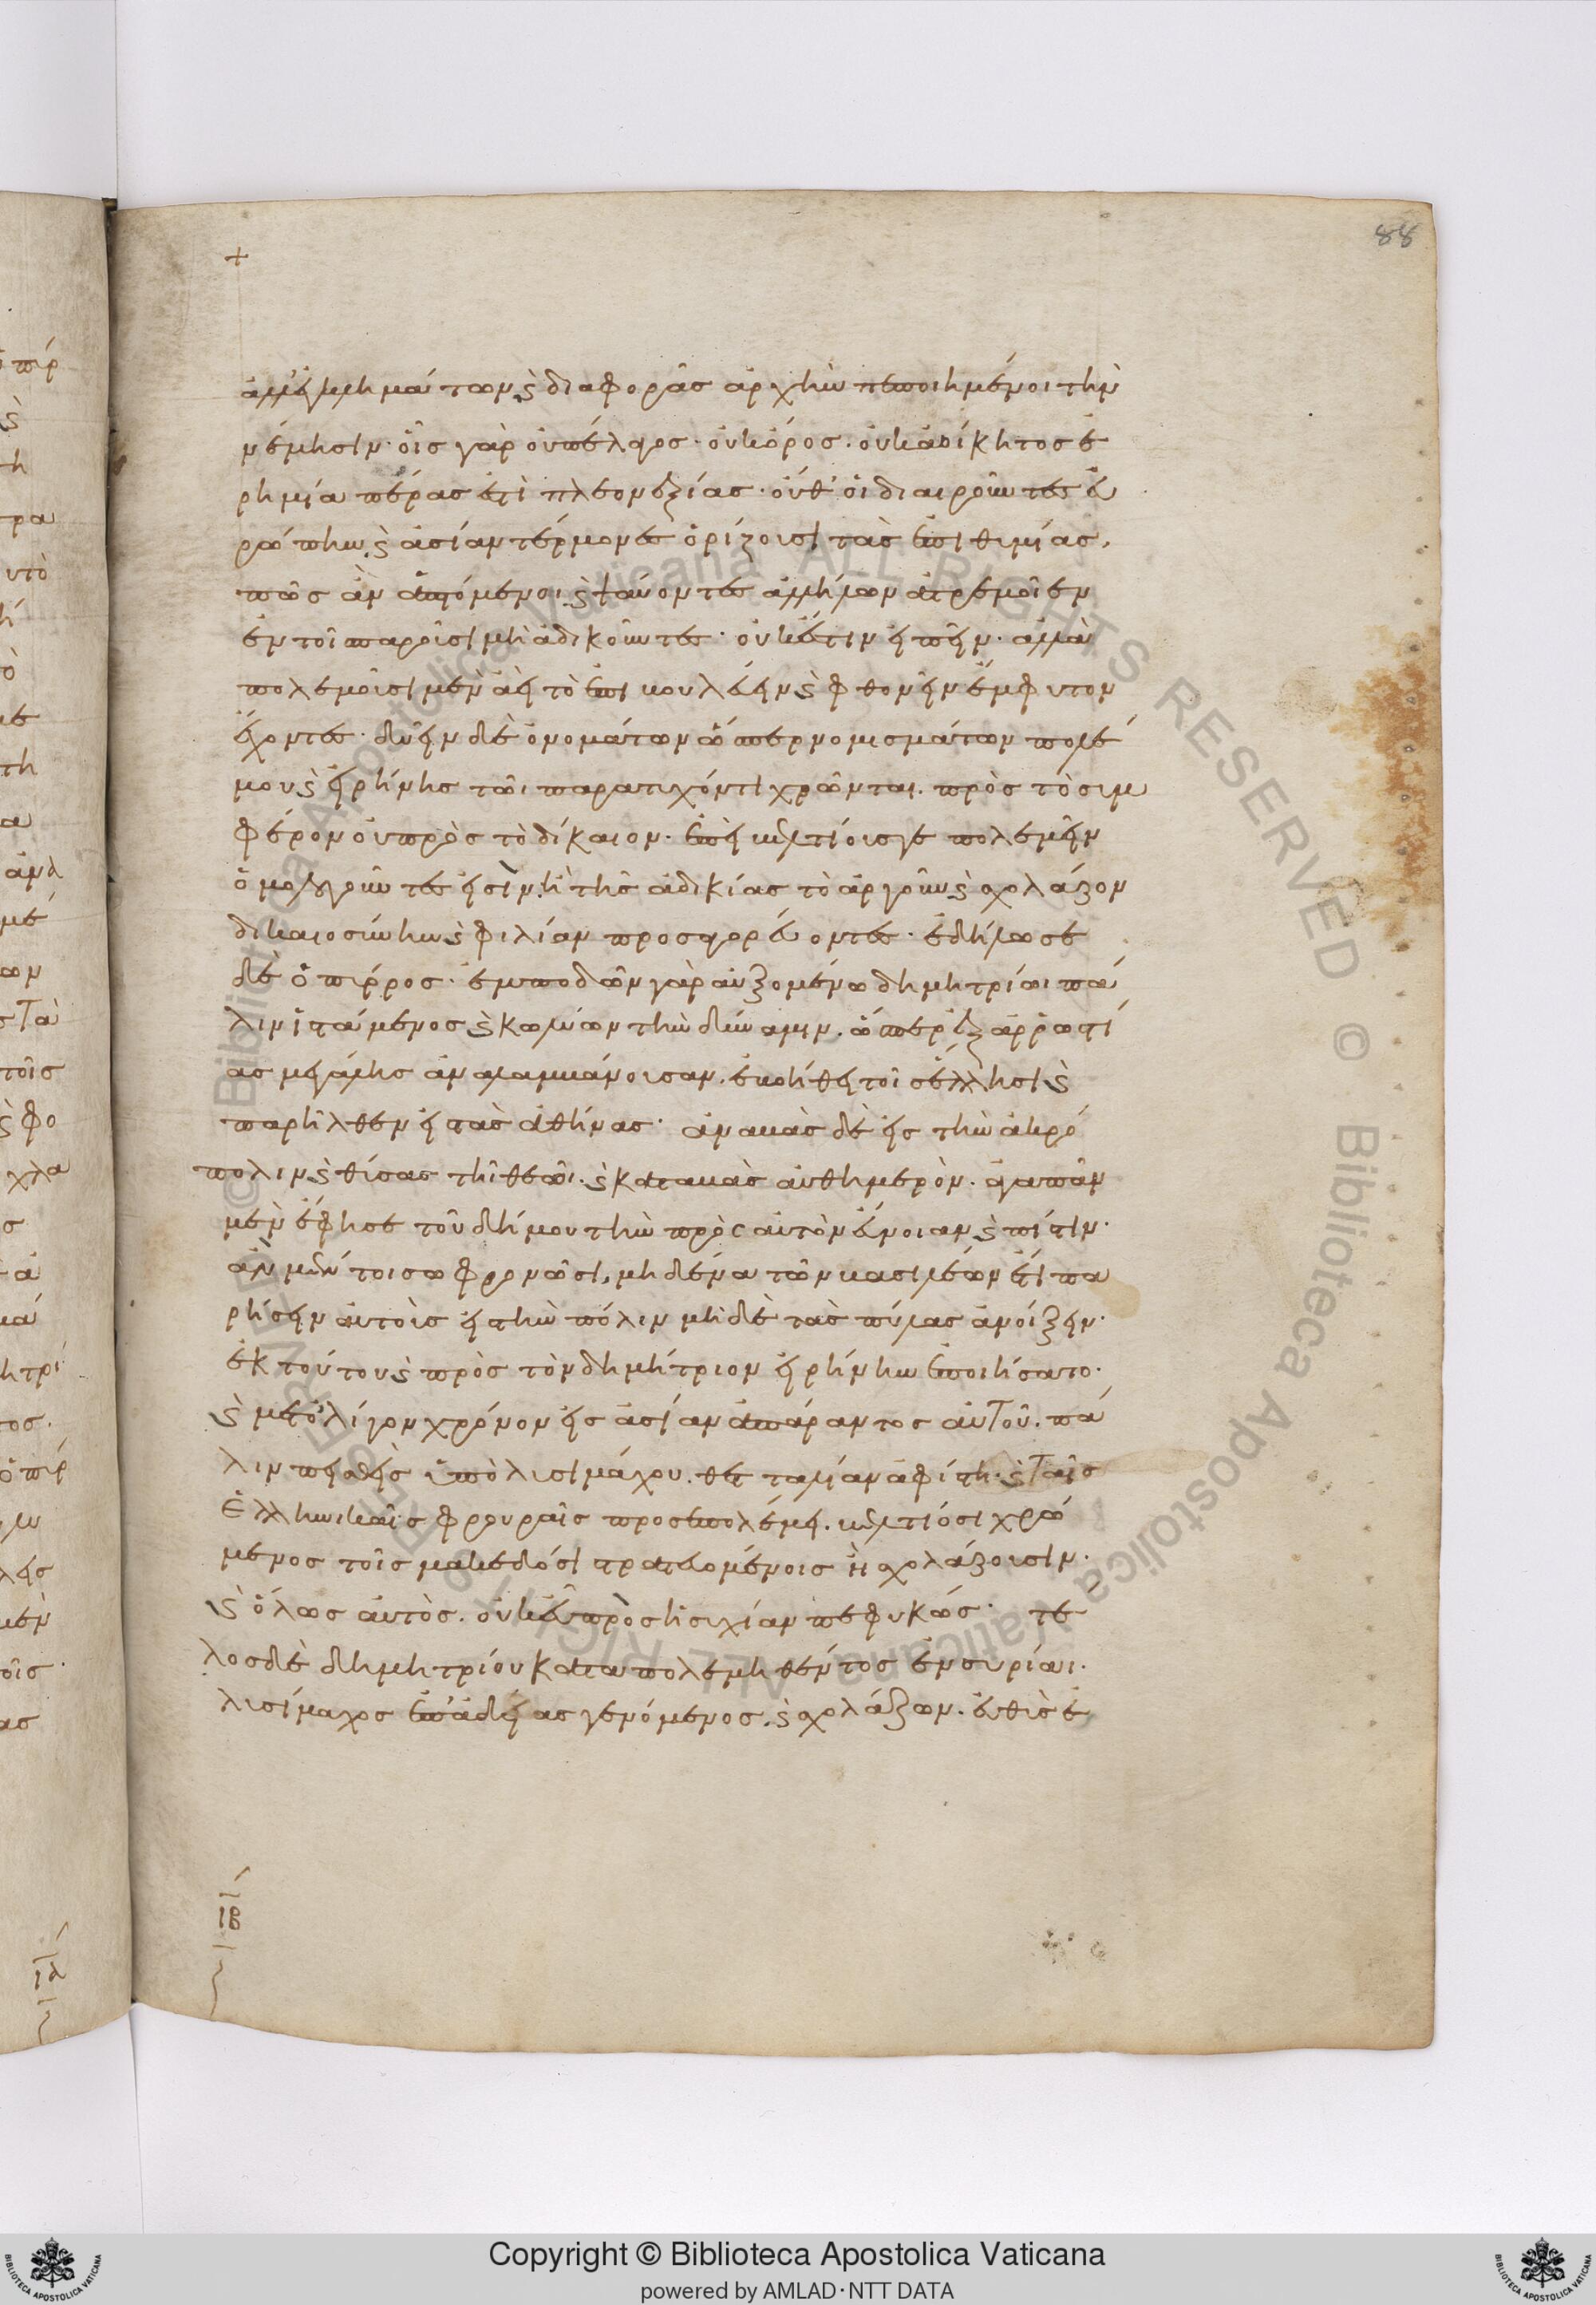 +
88
ἀλλ' ἐγκλημάτων ϛ̀ διαφορᾶς ἀρχὴν πεποιημένοι τὴν
νέμησιν· οἷς γὰρ οὐ πέλαγος· οὐκ ὄρος· οὐκ ἀοίκητος ἐ
ρημία πέρας ἐστὶ πλεονεξίας· οὔθ' οἱ διαιροῦντες εὐ
ρώπην ϛ̀ ἀσίαν τέρμονες ὁρίζουσι τὰς ἐπιθυμίας,
πῶς ἂν ἁπτόμενοι ϛ̀ ψαύοντες ἀλλήλων ἀτρεμοῖεν
ἐν τοῖ παροῦσι μὴ ἀδικοῦντες· οὐκ ἔστιν εἰπεῖν· ἀλλὰ
πολεμοῦσι μὲν ἀεὶ τὸ ἐπιβουλεύειν ϛ̀ φθονεῖν ἔμφυτον
ἔχοντες· δυεῖν δὲ ὀνομάτων ὥσπερ νομισμάτων πολέ
μου ϛ̀ εἰρήνης τῶι παρατυχόντι χρῶνται. πρὸς τὸ συμ
φέρον οὐ πρὸς τὸ δίκαιον· ἐπεὶ βελτίους γε πολεμεῖν
ὁμολογοῦντες εἰσὶν. ἢ τῆς ἀδικίας τὸ ἀργοῦν ϛ̀ σχολάζον
δικαιοσύνην ϛ̀ φιλίαν προσαγορεύοντες· ἐδήλωσε
δὲ ὁ πύρρος· ἐμποδὼν γὰρ αὐξομένω δημητρίωι πά
λιν ἱστάμενος ϛ̀ κωλύων τὴν δύναμιν. ὥσπερ ἐξ ἀρρωστί
ας μεγάλης ἀναλαμβάνουσαν. ἐβοήθει τοῖς ἕλλησι ϛ̀
παρῆλθεν εἰς τὰς ἀθήνας· ἀναβὰς δὲ εἰς τὴν ἀκρό
πολιν ϛ̀ θύσας τῆι θεῶι. ϛ̀ καταβὰς αὐθημερὸν. ἀγαπᾶν
μὲν ἔφησε τοῦ δήμου τὴν πρὸς αὐτὸν εὔνοιαν ϛ̀ πίστιν·
ἀλλ' μέν τοι σωφρονῶσι, μηδένα τῶν βασιλέων ἔτι πα
ρήσειν αὐτοὺς εἰς τὴν πόλιν μὴ δὲ τὰς πύλας ἀνοίξειν·
ἐκ τούτου ϛ̀ πρὸς τὸν δημήτριον εἰρήνην ἐποιήσατο·
ϛ̀ μετ' ὀλίγον χρόνον εἰς ἀσίαν ἀπάραντος αὐτοῦ. πά
λιν πεισθεὶς ὑπὸ λυσιμάχου. θετταλίαν ἀφίστη. ϛ̀ ταῖς
ἑλληνικαῖς φρουραῖς προσεπολέμει. βελτίοσι χρώ
μενος τοῖς μακεδόσι στρατευομένοις ἢ σχολάζουσιν·
ϛ̀ ὅλως αὐτὸς. οὐκ εὖ πρὸς ἡσυχίαν πεφυκώς· τέ
λος δὲ δημητρίου καταπολεμηθέντος ἐν συρίαι.
λυσίμαχος ἐπ' ἀδείας γενόμενος. ϛ̀ σχολάζων. εὐθὺς ἐ
ιβ